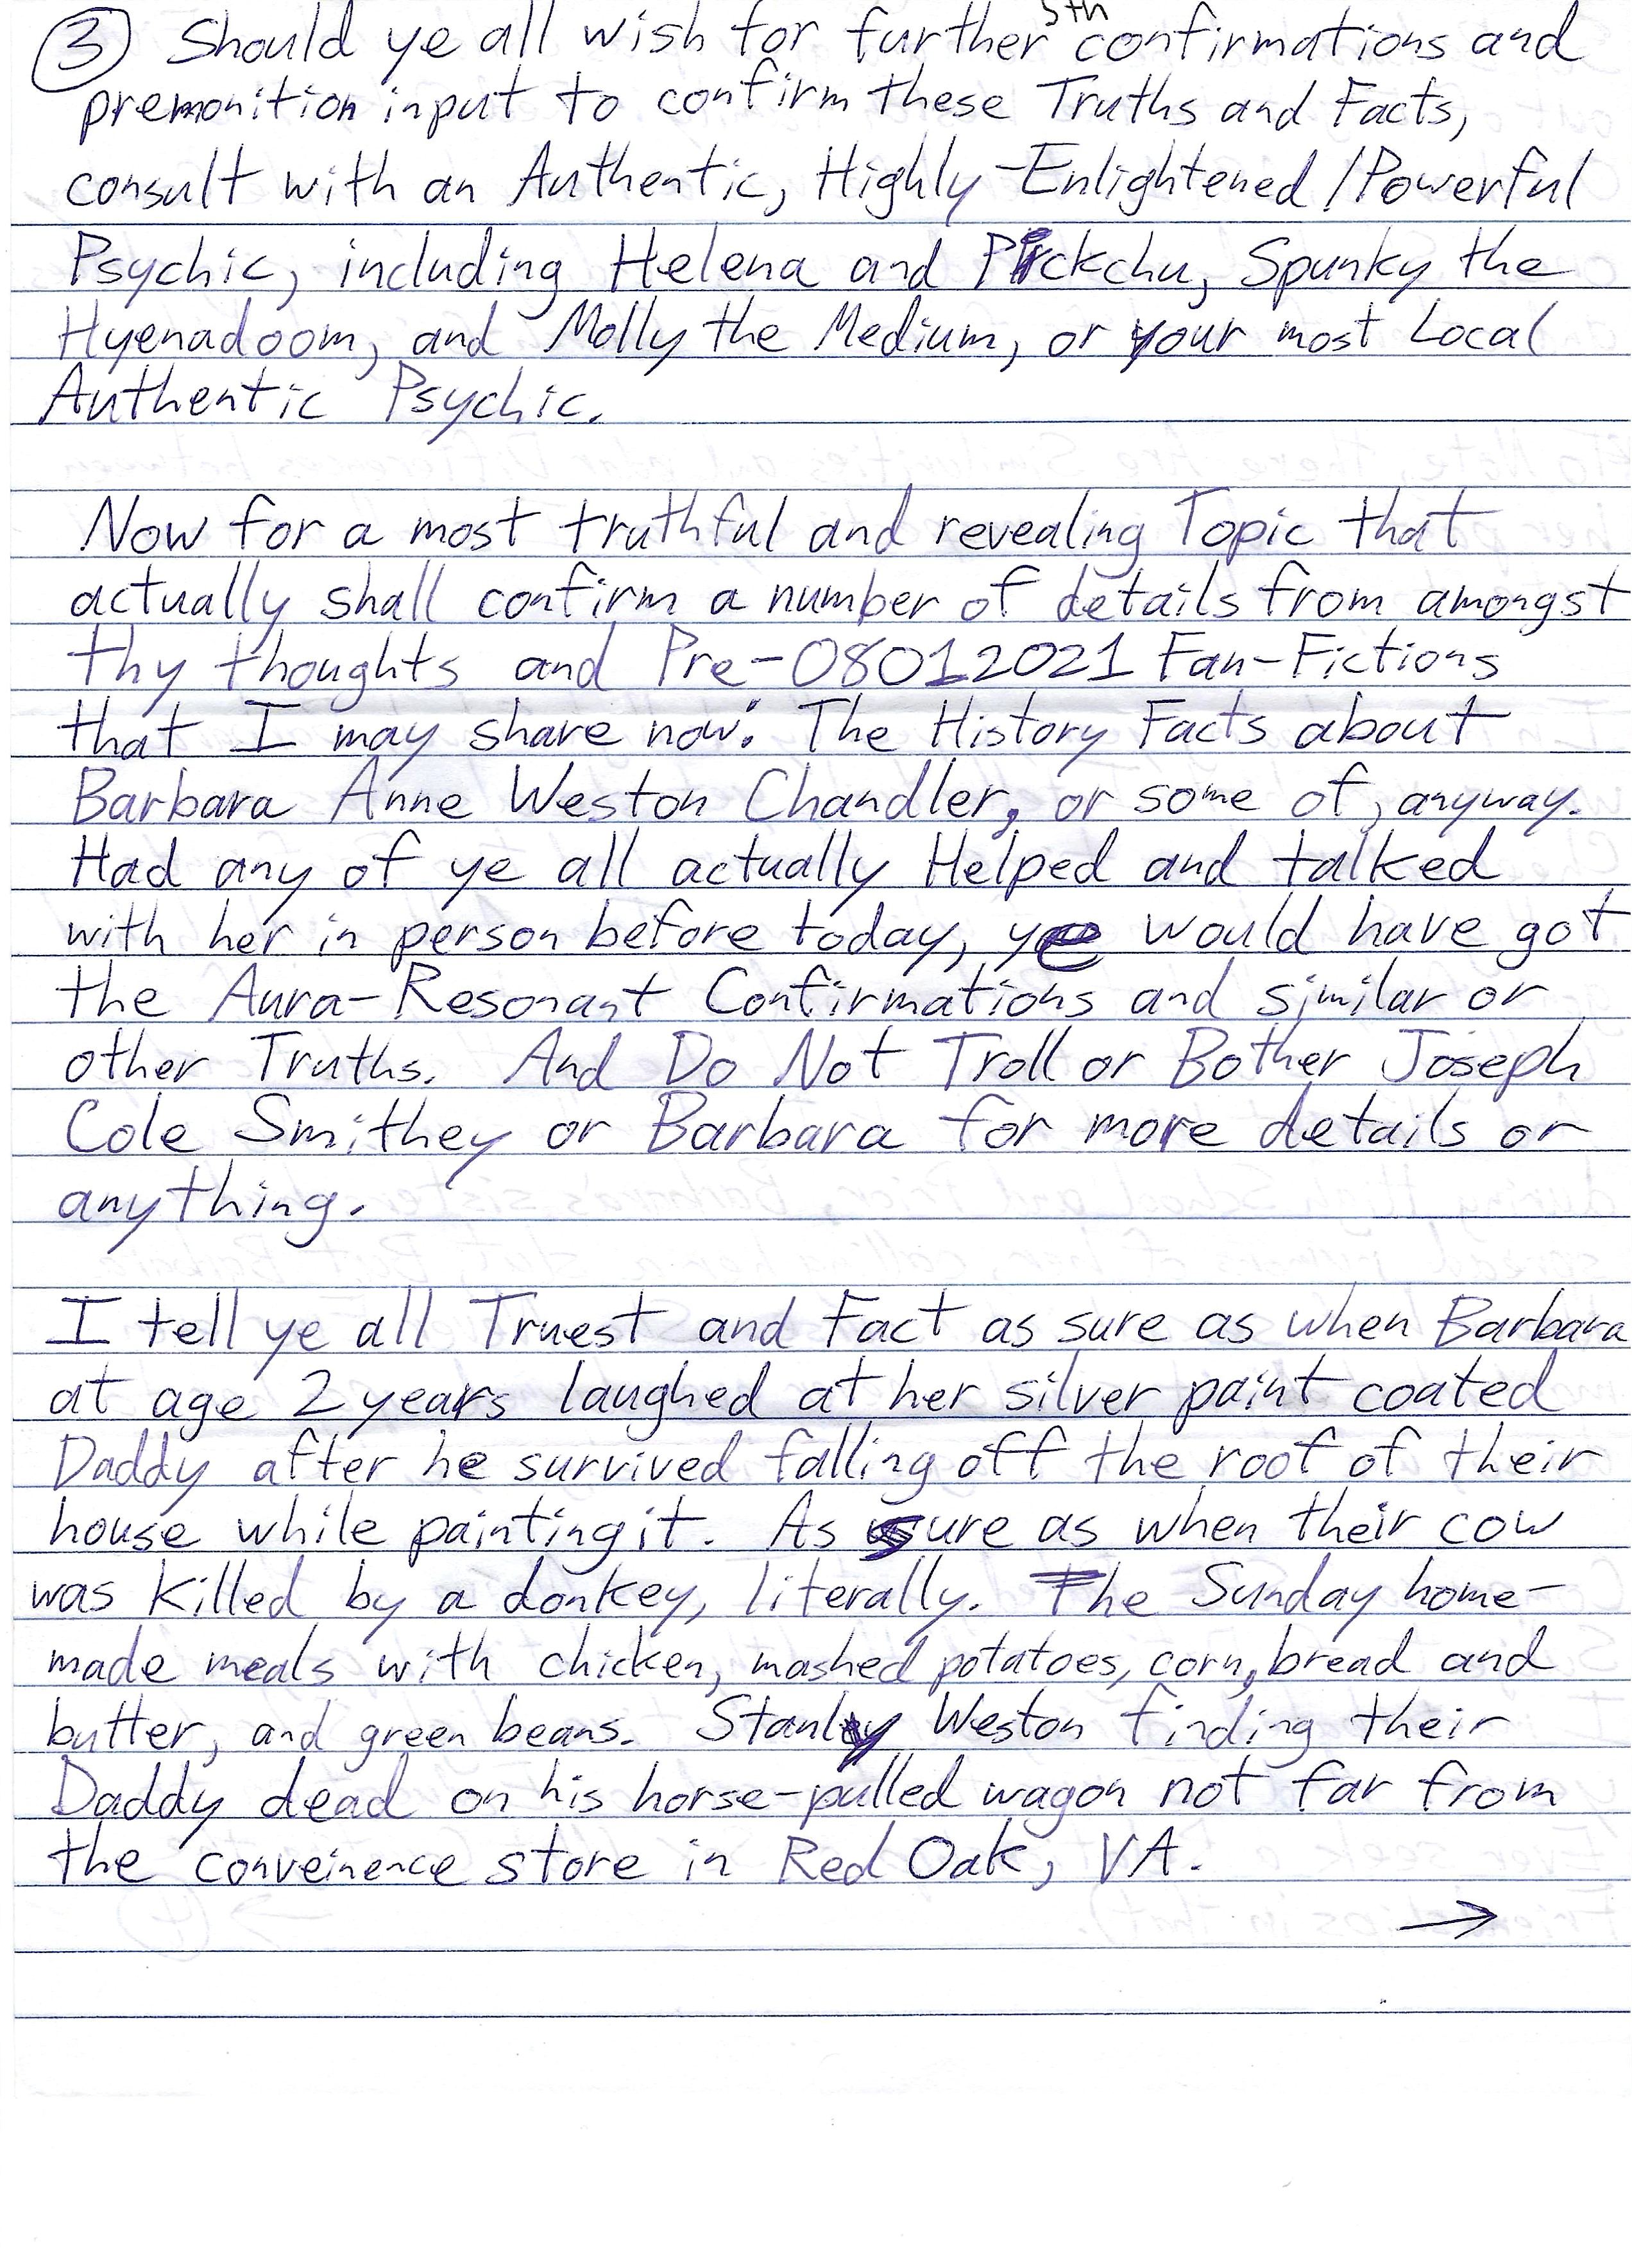 ③ Should ye all wish for further 5th confirmations and
premonition input to confirm these Truths and Facts,
consult with an Authentic, Highly-Enlightened/Powerful
Psychic, including Helena and Pickchu, Spunky the
Hyenadoom, and Molly the Medium, or your most Local
Authentic Psychic.
Now for a most truthful and revealing Topic that
actually shall confirm a number of details from amongst
thy thoughts and Pre-08012021 Fan-Fictions
that I may share now: The History Facts about
Barbara Anne Weston Chandler, or some of, anyway.
Had any of ye all actually Helped and talked
with her in person before today, ye would have got
the Aura-Resonant Confirmations and similar or
other Truths. And Do Not Troll or Bother Joseph
Cole Smithey or Barbara for more details or
anything.
I tell ye all Truest and Fact as sure as when Barbara
at age 2 years laughed at her silver paint coated
Daddy after he survived falling off the roof of their
house while painting it. As sure as when their cow
was killed by a donkey, literally. The Sunday home-
made meals with chicken, mashed potatoes, corn, bread and
butter, and green beans. Stanley Weston finding their
Daddy dead on his horse-pulled wagon not far from
the conveinence store in Red Oak, VA.
→